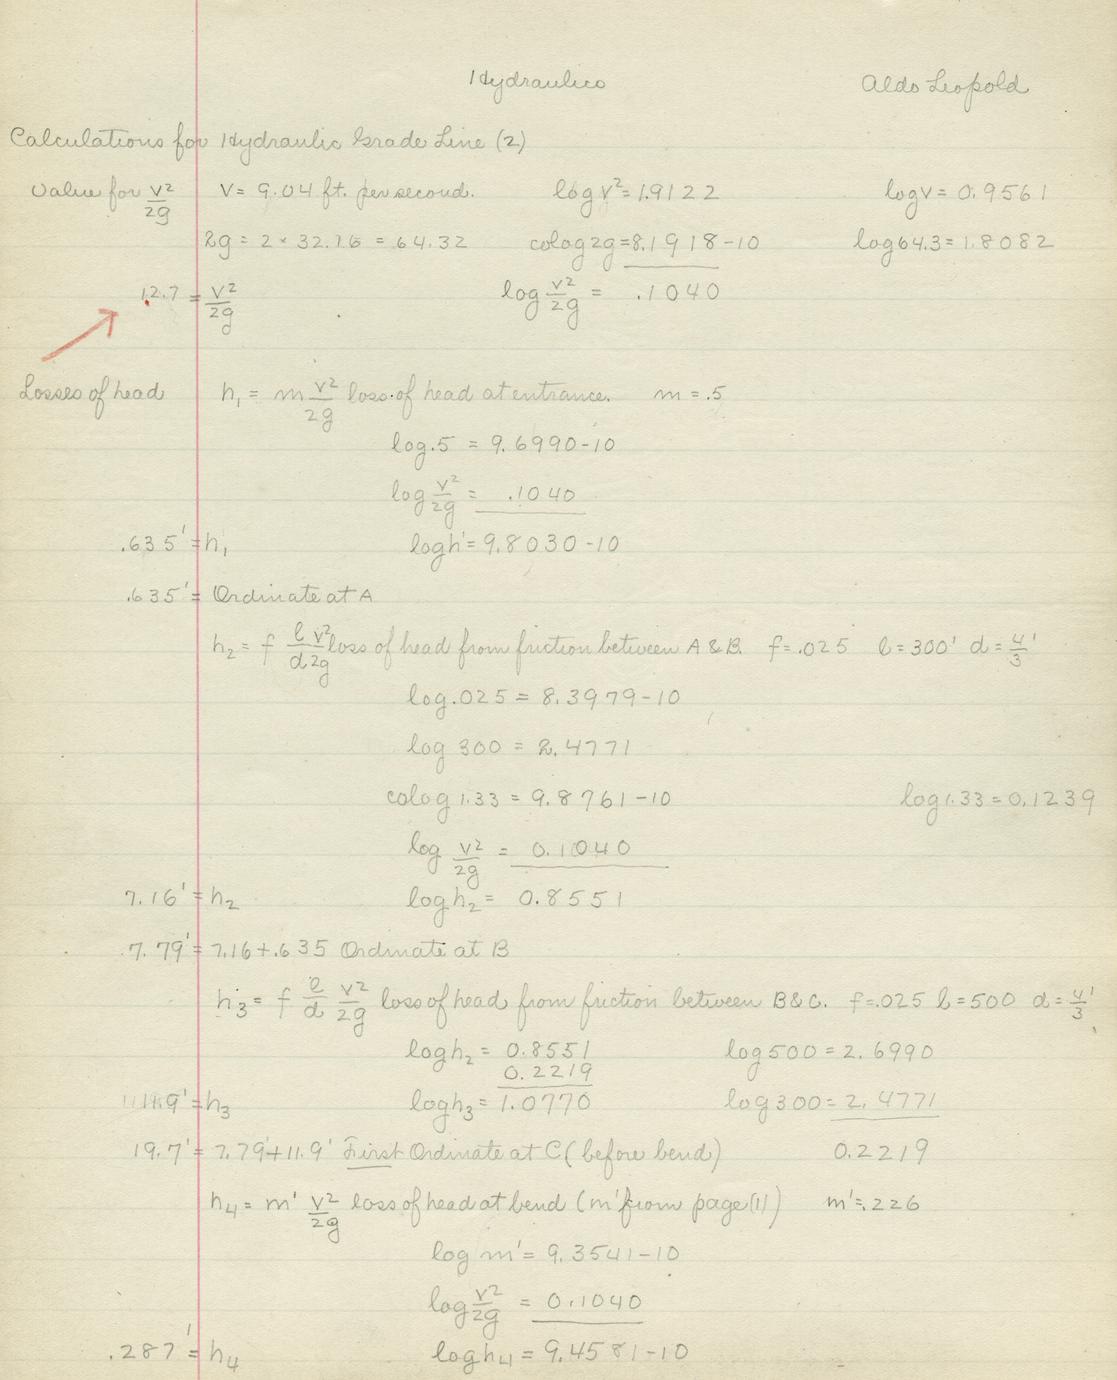 Hydraulics Aldo Leopold
Calculations for Hydraulic Grade Line (2)
Value for v²/2g V = 9.04 ft. per second. log v² = 1.9122 log v = 0.9561
2g = 2 × 32.16 = 64.32 colog 2g = 8.1918-10 log 64.3 = 1.8082
1.2.7 = v²/2g log v²/2g = .1040
Losses of head h₁ = m v²/2g loss of head at entrance. m = .5
log .5 = 9.6990-10
log v²/2g = .1040
.635' = h₁ log h' = 9.8030-10
.635' = Ordinate at A
h₂ = f l/d v²/2g loss of head from friction between A & B. f = .025 l = 300' d = 4/3'
log .025 = 8.3979-10
log 300 = 2.4771
colog 1.33 = 9.8761-10 log 1.33 = 0.1239
log v²/2g = 0.1040
7.16' = h₂ log h₂ = 0.8551
7.79' = 7.16 + .635 Ordinate at B
h₃ = f l/d v²/2g loss of head from friction between B & C. f = .025 l = 500 d = 4/3'
log h₂ = 0.8551 log 500 = 2.6990
0.2219
11.9' = h₃ log h₃ = 1.0770 log 300 = 2.4771
19.7' = 7.79' + 11.9' First Ordinate at C (before bend) 0.2219
h₄ = m' v²/2g loss of head at bend (m' from page (1)) m' = .226
log m' = 9.3541-10
log v²/2g = 0.1040
.287' = h₄ log h₄ = 9.4581-10